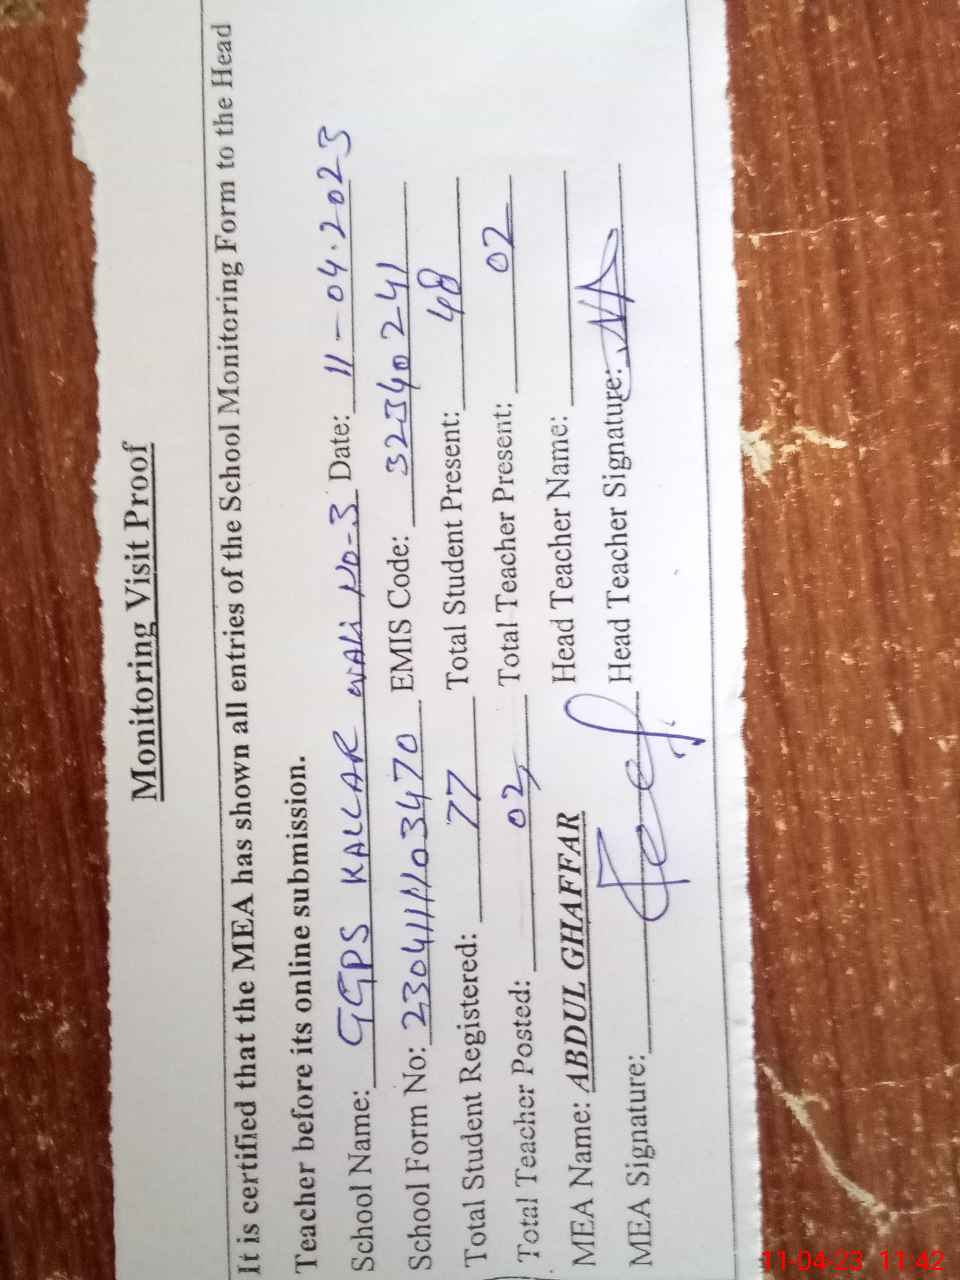 Monitoring Visit Proof
It is certified that the MEA has shown all entries of the School Monitoring Form to the Head
Teacher before its online submission.
School Name: GGPS KALLAR WALI NO-3 Date: 11-04.2023
School Form No: 230411111103470 EMIS Code: 32340241
Total Student Registered: 77 Total Student Present: 48
Total Teacher Posted: 02 Total Teacher Present: 02
MEA Name: ABDUL GHAFFAR Head Teacher Name:
MEA Signature: Head Teacher Signature:
11-04-23 11:42